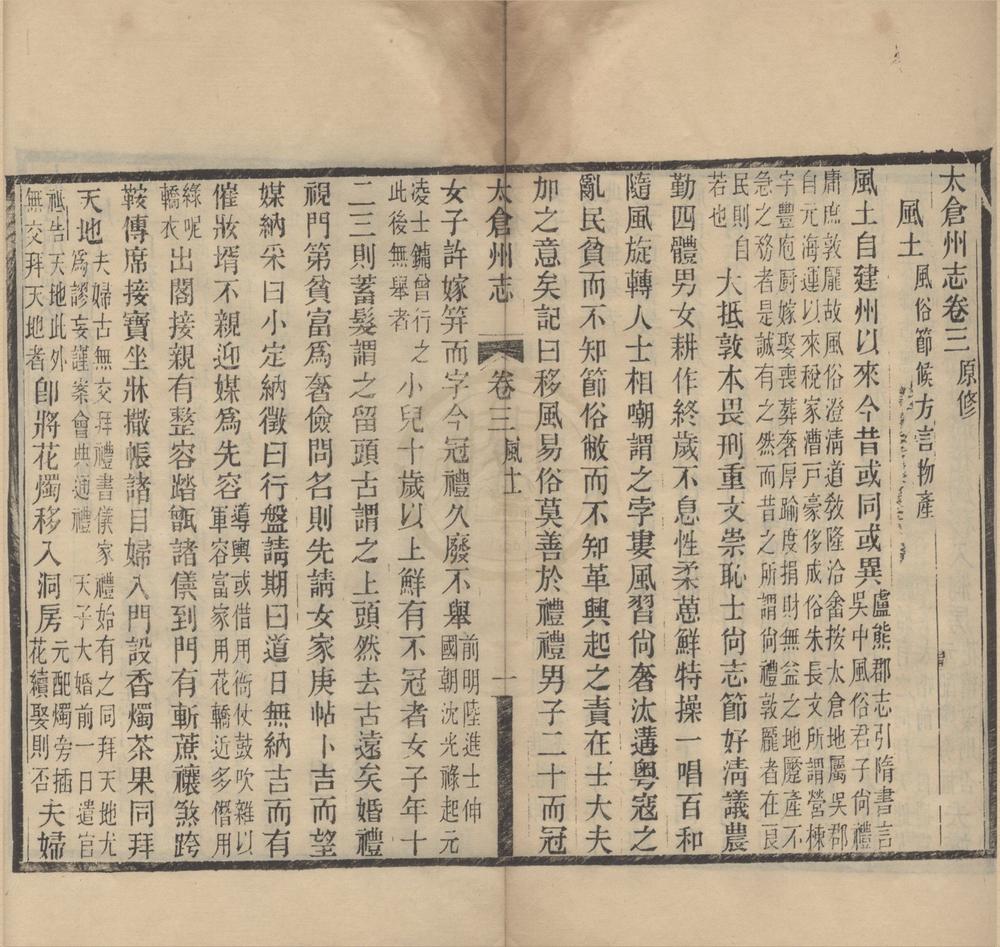 太倉州志卷三 原修
風土 風俗節候方言物產
風土自建州以來今昔或同或異盧熊郡志引隋書言吳中風俗君子尙禮
庸庶敦龐故風俗澄淸道敎隆洽畬按太倉地屬吳郡
自元海運以來稅家漕戸豪侈成俗朱長文所謂營棟
宇豐庖厨嫁娶喪葬奢厚踰度捐財無益之地蹷產不
急之務者是誠有之然而昔之所謂尙禮敦龐者在良
民則自若也大抵敦本畏刑重文崇恥士尙志節好淸議農
勤四體男女耕作終歲不息性柔葸鮮特操一唱百和
隨風旋轉人士相嘲謂之孛婁風習尙奢汰遘粤寇之
亂民貧而不知節俗敝而不知革興起之責在士大夫
加之意矣記曰移風易俗莫善於禮禮男子二十而冠
太倉州志 卷三 風土 一
女子許嫁筓而字今冠禮久廢不舉前明陸進士伸國朝沈光祿起元
凌士鏽曾行之此後無舉者小兒十歲以上鮮有不冠者女子年十
二三則蓄髮謂之留頭古謂之上頭然去古遠矣婚禮
視門第貧富爲奢儉問名則先請女家庚帖卜吉而望
媒納采曰小定納徵曰行盤請期曰道日無納吉而有
催妝壻不親迎媒爲先容導輿或借用銜仗鼓吹雜以軍容富家用花轎近多僭用
綠呢轎衣出閣接親有整容踏甑諸儀到門有斬蔗禳煞跨
鞍傳席接寶坐牀撒帳諸目婦入門設香燭茶果同拜
天地夫婦古無交拜禮書儀家禮始有之同拜天地尤爲謬妄謹案會典通禮 天子大婚前一日遣官
祗告天地此外無交拜天地者卽將花燭移入洞房元配燭旁插花續娶則否夫婦